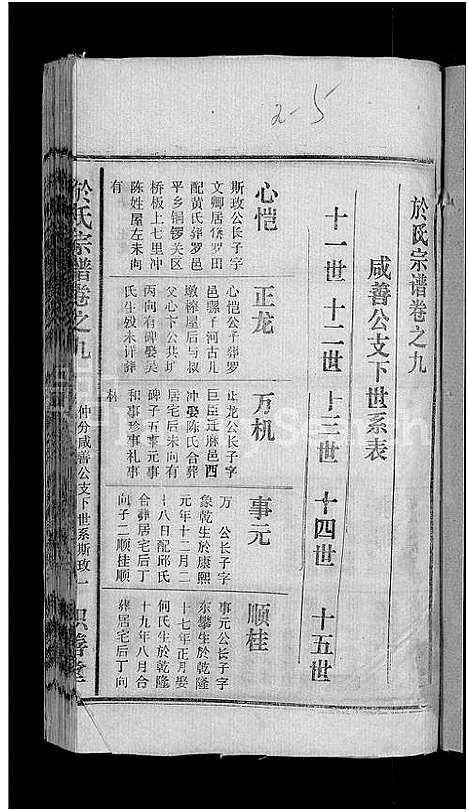 2-5
於氏宗谱卷之九
咸善公支下世系表
十一世 十二世 十三世 十四世 十五世
心恺
斯政公长子字
文卿居徐罗田
配黄氏葬罗邑
平乡铜锣关区
桥板上七里冲
陈姓屋左未向
有
正龙
心恺公子葬罗
邑骡子河古儿
墩榨屋后与叔
父心下公共圹
丙向有碑娶吴
氏生殁未详葬
万机
正龙公长子字
巨臣迁麻邑西
冲娶陈氏合葬
居宅后未向有
碑子五事元事
和事珍事礼事
林
事元
万 公长子字
象乾生於康熙
元年十二月二
十八日配邱氏
合葬居宅后丁
向子二顺桂顺
顺桂
事元公长子字
东攀生於乾隆
十七年正月娶
何氏生於乾隆
十九年八月合
葬居宅后丁向
於氏宗谱卷之九
仲分咸善公支下世系斯政一